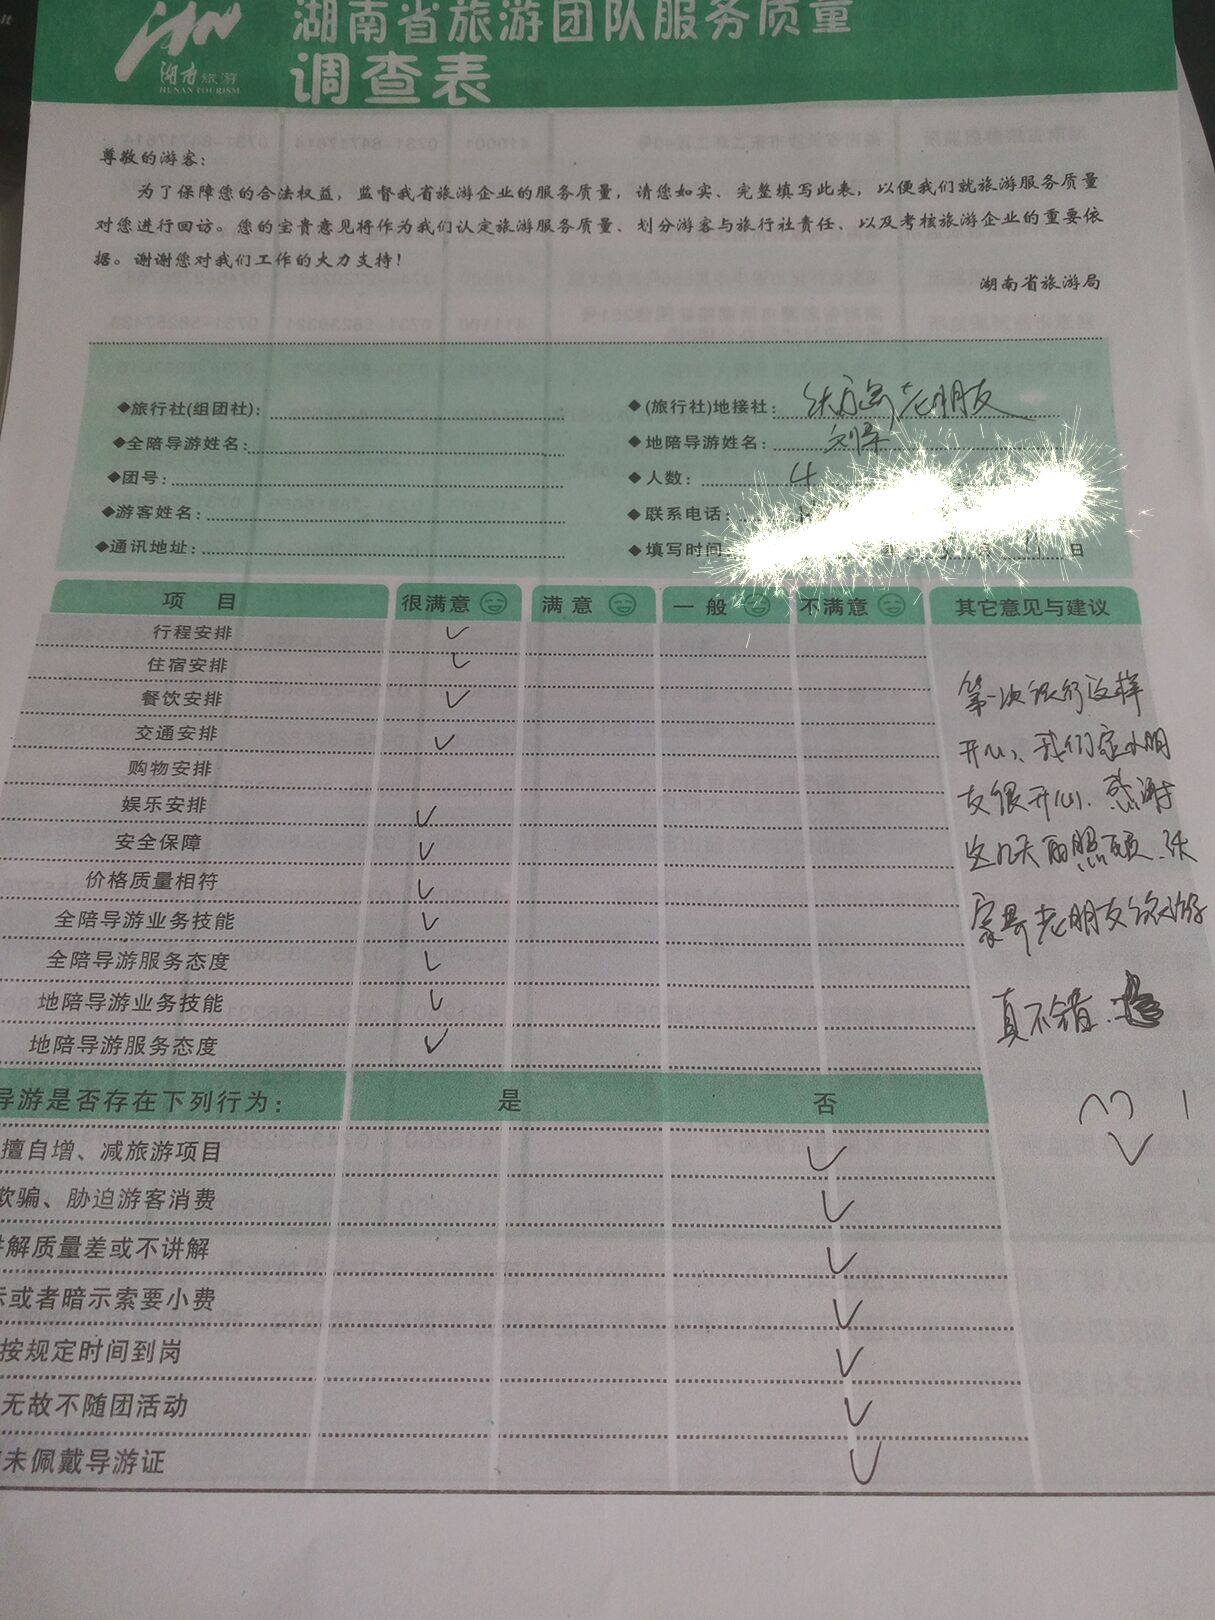 湖南省旅游团队服务质量
调查表
湖南旅游
HUNAN TOURISM
尊敬的游客：
为了保障您的合法权益，监督我省旅游企业的服务质量，请您如实、完整填写此表，以便我们就旅游服务质量
对您进行回访。您的宝贵意见将作为我们认定旅游服务质量、划分游客与旅行社责任、以及考核旅游企业的重要依
据。谢谢您对我们工作的大力支持！
湖南省旅游局
◆旅行社(组团社)： ◆(旅行社)地接社：张家界老朋友
◆全陪导游姓名： ◆地陪导游姓名：刘
◆团号： ◆人数：4
◆游客姓名： ◆联系电话：
◆通讯地址： ◆填写时间： 年 月 日
项 目 很满意 满 意 一 般 不满意 其它意见与建议
行程安排 ✓
住宿安排 ✓
餐饮安排 ✓
交通安排 ✓
购物安排
娱乐安排 ✓
安全保障 ✓
价格质量相符 ✓
全陪导游业务技能 ✓
全陪导游服务态度 ✓
地陪导游业务技能 ✓
地陪导游服务态度 ✓
第一次旅行这样
开心、我们家小朋
友很开心、感谢
这几天的照顾、张
家界老朋友旅游
真不错.
导游是否存在下列行为： 是 否
擅自增、减旅游项目 ✓
欺骗、胁迫游客消费 ✓
讲解质量差或不讲解 ✓
示或者暗示索要小费 ✓
按规定时间到岗 ✓
无故不随团活动 ✓
未佩戴导游证 ✓